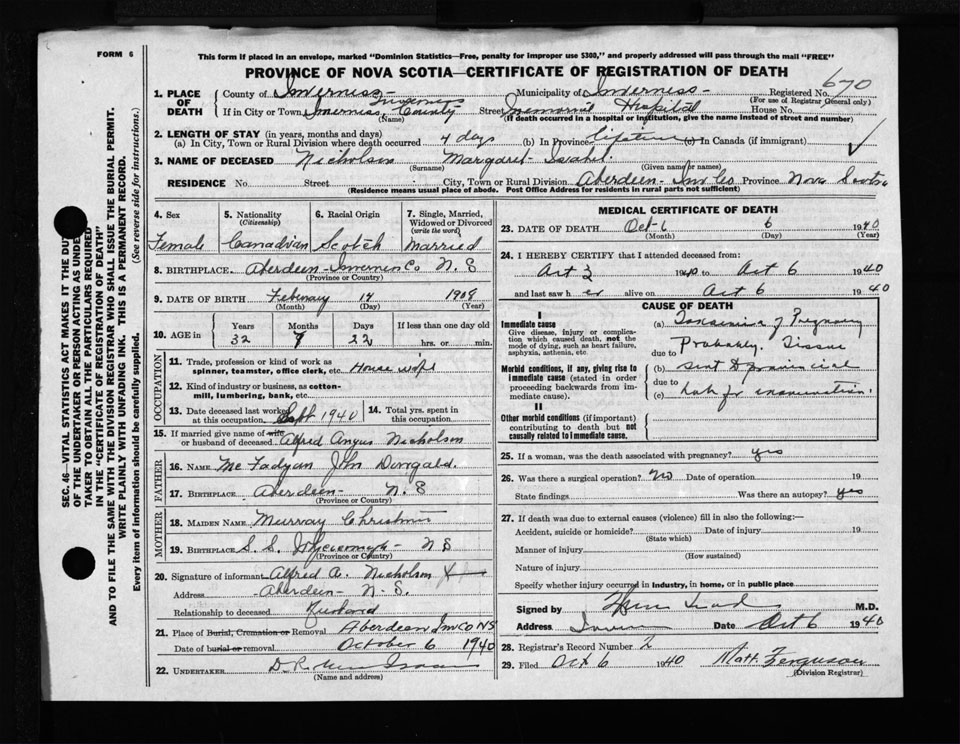 FORM 6
This form if placed in an envelope, marked "Dominion Statistics—Free, penalty for improper use $300," and properly addressed will pass through the mail "FREE"
PROVINCE OF NOVA SCOTIA—CERTIFICATE OF REGISTRATION OF DEATH
670
1. PLACE OF DEATH
County of Inverness Municipality of Inverness Registered No.
(For use of Registrar General only)
If in City or Town Inverness Inverness County Street Memorial Hospital House No.
(Name) (If death occurred in a hospital or institution, give the name instead of street and number)
2. LENGTH OF STAY (in years, months and days)
(a) In City, Town or Rural Division where death occurred 4 days (b) In Province lifetime (c) In Canada (if immigrant)
3. NAME OF DECEASED Nicholson Margaret Isabel
(Surname) (Given name or names)
RESIDENCE No. Street City, Town or Rural Division Aberdeen - Inv Co Province Nova Scotia
(Residence means usual place of abode. Post Office Address for residents in rural parts not sufficient)
4. Sex 5. Nationality (Citizenship) 6. Racial Origin 7. Single, Married, Widowed or Divorced (write the word)
Female Canadian Scotch Married
8. BIRTHPLACE. Aberdeen - Inverness Co N. S
(Province or Country)
9. DATE OF BIRTH February 14 1908
(Month) (Day) (Year)
10. AGE in Years Months Days If less than one day old
32 7 22 hrs. or min.
OCCUPATION
11. Trade, profession or kind of work as spinner, teamster, office clerk, etc House wife
12. Kind of industry or business, as cotton-mill, lumbering, bank, etc.
13. Date deceased last worked at this occupation Sept 1940 14. Total yrs. spent in this occupation
15. If married give name of wife or husband of deceased. Alfred Angus Nicholson
FATHER
16. NAME McFadyen John Dougald.
17. BIRTHPLACE Aberdeen - N. S
(Province or Country)
MOTHER
18. MAIDEN NAME Murray
19. BIRTHPLACE S. S. - N S
(Province or Country)
20. Signature of informant Alfred A. Nicholson X
Address Aberdeen - N. S.
Relationship to deceased Husband
21. Place of Burial, Cremation or Removal Aberdeen Inv Co NS
Date of burial or removal October 6 1940
22. UNDERTAKER
(Name and address)
MEDICAL CERTIFICATE OF DEATH
23. DATE OF DEATH Oct 6 6 1940
(Month) (Day) (Year)
24. I HEREBY CERTIFY that I attended deceased from:
Oct 3 1940 to Oct 6 1940
and last saw h er alive on Oct 6 1940
CAUSE OF DEATH
I
Immediate cause
Give disease, injury or complication which caused death, not the mode of dying, such as heart failure, asphyxia, asthenia, etc.
(a) Toxaemia of Pregnancy
Probably. Tissue
due to
Morbid conditions, if any, giving rise to immediate cause (stated in order proceeding backwards from immediate cause).
(b) sent to Provincial
due to
(c) Lab for examination.
II
Other morbid conditions (if important) contributing to death but not causally related to immediate cause.
25. If a woman, was the death associated with pregnancy? yes
26. Was there a surgical operation? No Date of operation 19
State findings Was there an autopsy? yes
27. If death was due to external causes (violence) fill in also the following:—
Accident, suicide or homicide? Date of injury 19
(State which)
Manner of injury
(How sustained)
Nature of injury
Specify whether injury occurred in industry, in home, or in public place
Signed by M.D.
Address Date Oct 6 1940
28. Registrar's Record Number 2
29. Filed Oct 6 1940 Matt. Ferguson
(Division Registrar)
SEC. 46—VITAL STATISTICS ACT MAKES IT THE DUTY
OF THE UNDERTAKER OR PERSON ACTING AS UNDERTAKER TO OBTAIN ALL THE PARTICULARS REQUIRED
IN THE "CERTIFICATE OF REGISTRATION OF DEATH"
AND TO FILE THE SAME WITH THE DIVISION REGISTRAR WHO SHALL ISSUE THE BURIAL PERMIT.
WRITE PLAINLY WITH UNFADING INK. THIS IS A PERMANENT RECORD.
Every item of information should be carefully supplied. (See reverse side for instructions.)